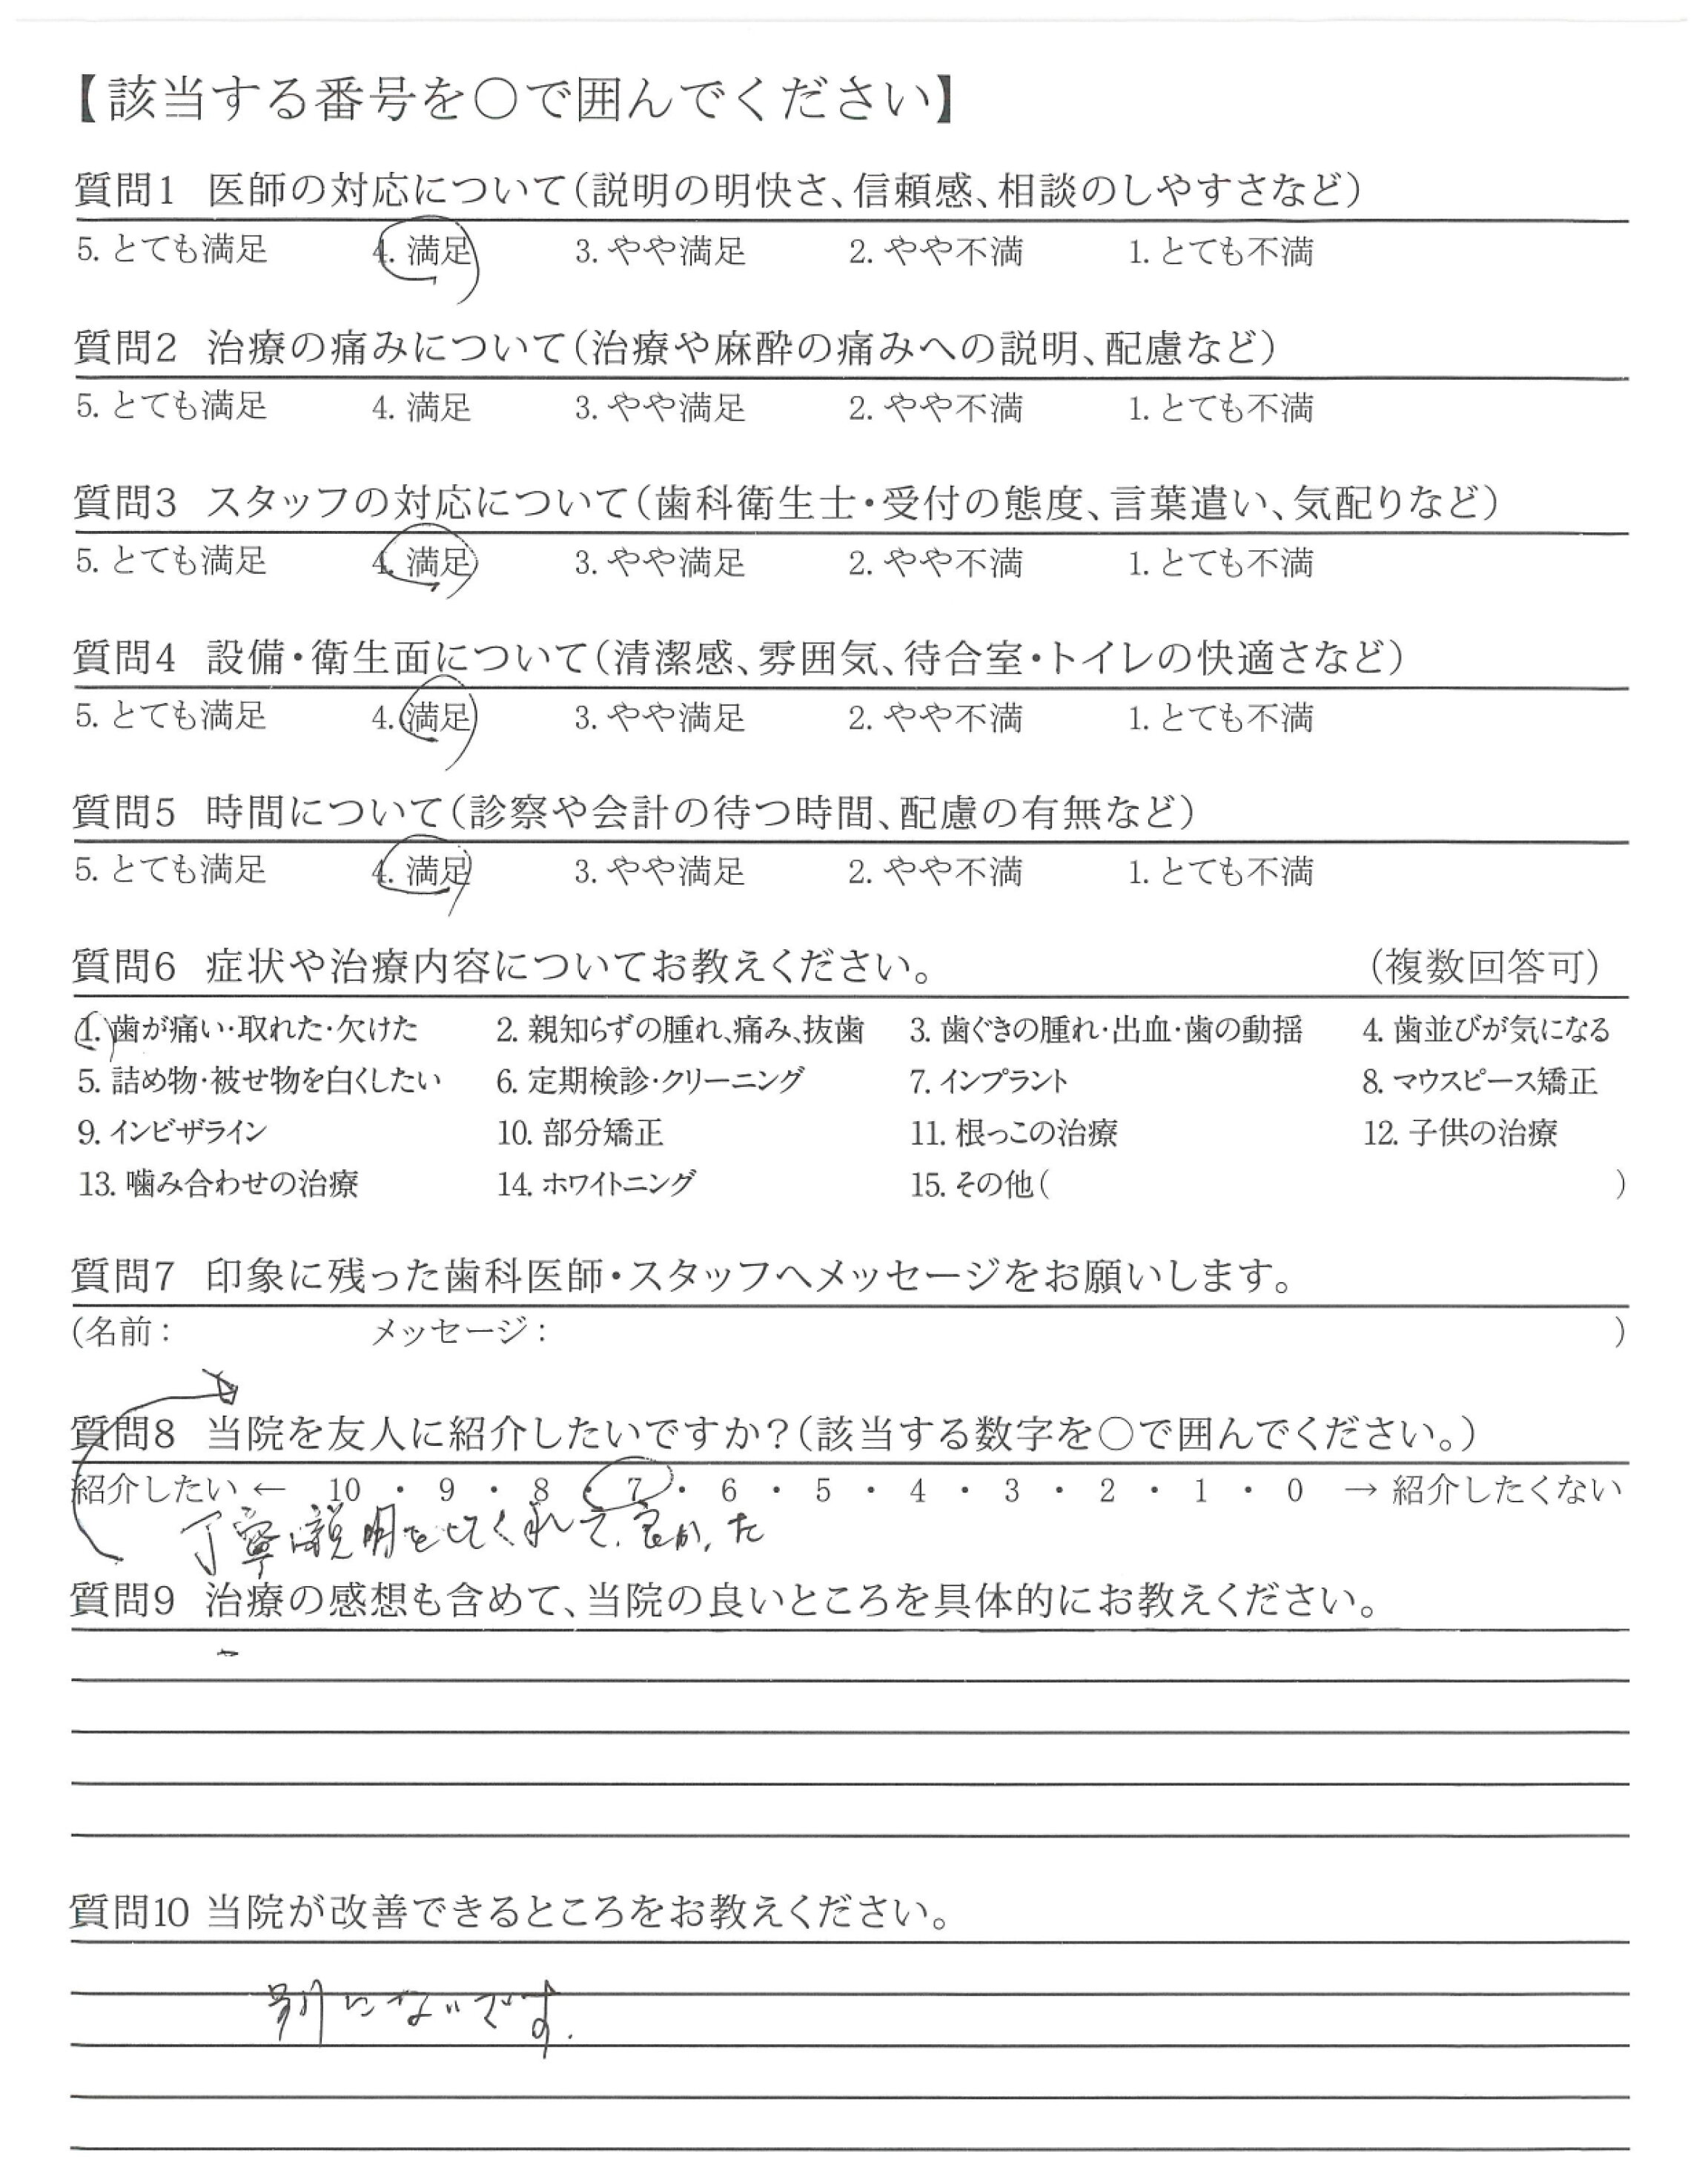 【該当する番号を○で囲んでください】
質問1 医師の対応について(説明の明快さ、信頼感、相談のしやすさなど)
5. とても満足 4. 満足 3. やや満足 2. やや不満 1. とても不満
質問2 治療の痛みについて(治療や麻酔の痛みへの説明、配慮など)
5. とても満足 4. 満足 3. やや満足 2. やや不満 1. とても不満
質問3 スタッフの対応について(歯科衛生士・受付の態度、言葉遣い、気配りなど)
5. とても満足 4. 満足 3. やや満足 2. やや不満 1. とても不満
質問4 設備・衛生面について(清潔感、雰囲気、待合室・トイレの快適さなど)
5. とても満足 4. 満足 3. やや満足 2. やや不満 1. とても不満
質問5 時間について(診察や会計の待つ時間、配慮の有無など)
5. とても満足 4. 満足 3. やや満足 2. やや不満 1. とても不満
質問6 症状や治療内容についてお教えください。 (複数回答可)
1. 歯が痛い・取れた・欠けた 2. 親知らずの腫れ、痛み、抜歯 3. 歯ぐきの腫れ・出血・歯の動揺 4. 歯並びが気になる
5. 詰め物・被せ物を白くしたい 6. 定期検診・クリーニング 7. インプラント 8. マウスピース矯正
9. インビザライン 10. 部分矯正 11. 根っこの治療 12. 子供の治療
13. 噛み合わせの治療 14. ホワイトニング 15. その他( )
質問7 印象に残った歯科医師・スタッフへメッセージをお願いします。
(名前: メッセージ: )
質問8 当院を友人に紹介したいですか?(該当する数字を○で囲んでください。)
紹介したい ← 10 ・ 9 ・ 8 ・ 7 ・ 6 ・ 5 ・ 4 ・ 3 ・ 2 ・ 1 ・ 0 → 紹介したくない
丁寧に説明をしてくれて、良かった
質問9 治療の感想も含めて、当院の良いところを具体的にお教えください。
質問10 当院が改善できるところをお教えください。
別にないです.